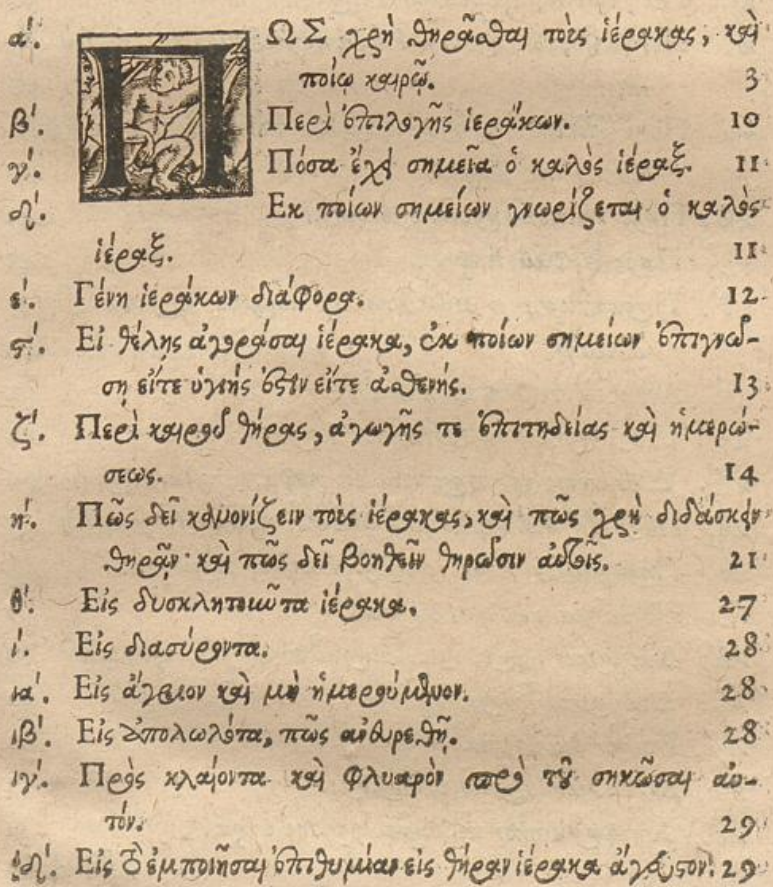 α΄. ΠΩΣ χρὴ θηρᾶσθαι τοὺς ἱέρακας, καὶ
ποίῳ καιρῷ. 3
β΄. Περὶ ἐπιλογῆς ἱεράκων. 10
γ΄. Πόσα ἔχει σημεῖα ὁ καλὸς ἱέραξ. 11
δ΄. Εκ ποίων σημείων γνωρίζεται ὁ καλὸς
ἱέραξ. 11
ε΄. Γένη ἱεράκων διάφορα. 12
ϛ΄. Εἰ θέλης ἀγοράσαι ἱέρακα, ἐκ ποίων σημείων ἐπιγνώ-
ση εἴτε ὑγιής ἐστιν εἴτε ἀσθενής. 13
ζ΄. Περὶ καιροῦ θήρας, ἀγωγῆς τε ἐπιτηδείας καὶ ἡμερώ-
σεως. 14
η΄. Πῶς δεῖ καμονίζειν τοὺς ἱέρακας, καὶ πῶς χρὴ διδάσκειν
θηρᾷν· καὶ πῶς δεῖ βοηθεῖν θηρῶσιν αὐτοῖς. 21
θ΄. Εἰς δυσκλητοιῶτα ἱέρακα. 27
ι΄. Εἰς διασύροντα. 28
ια΄. Εἰς ἄγριον καὶ μὴ ἡμερούμενον. 28
ιβ΄. Εἰς ἀπολωλότα, πῶς αὖ εὑρεθῇ. 28
ιγ΄. Πρὸς κλαίοντα καὶ φλυαρὸν πρὸ τοῦ σηκῶσαι αὐ-
τόν. 29
ιδ΄. Εἰς τὸ ἐμποιῆσαι ἐπιθυμίαν εἰς θήραν ἱέρακα ἄγευστον. 29